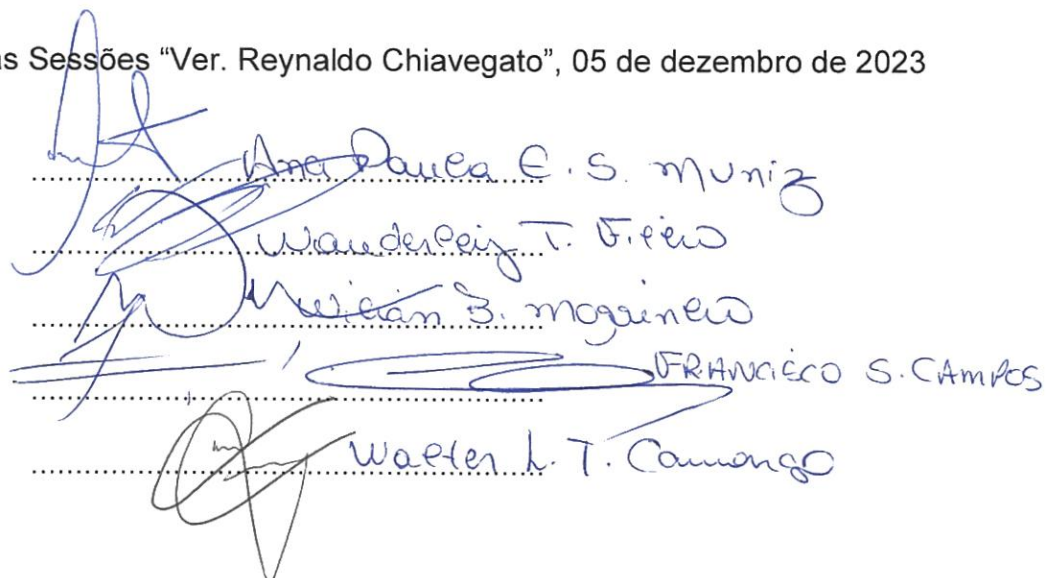 as Sessões “Ver. Reynaldo Chiavegato”, 05 de dezembro de 2023
Ana Paula E. S. Muniz
Wanderley T. Filho
Willian B. Moguinelo
FRANCISCO S. CAMPOS
Walter L. T. Camargo